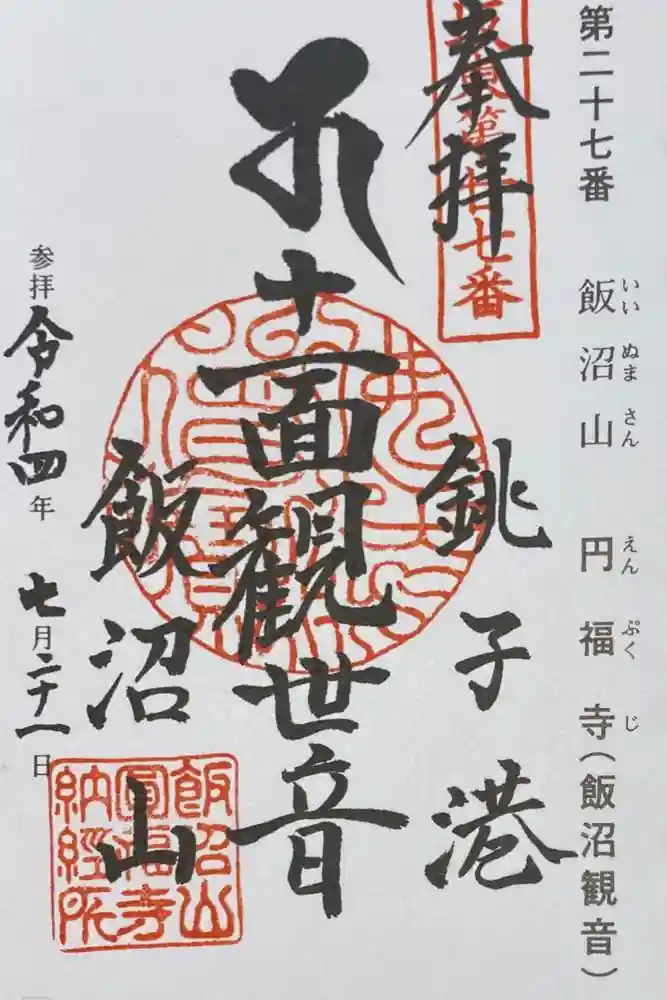 第二十七番 飯沼山 円福寺(飯沼観音)
いい ぬま さん えん ぷく じ
奉拝
坂東第廿七番
銚子港
十一面観世音
飯沼山
飯沼山
圓福寺
納経所
参拝 令和四年 七月二十一日